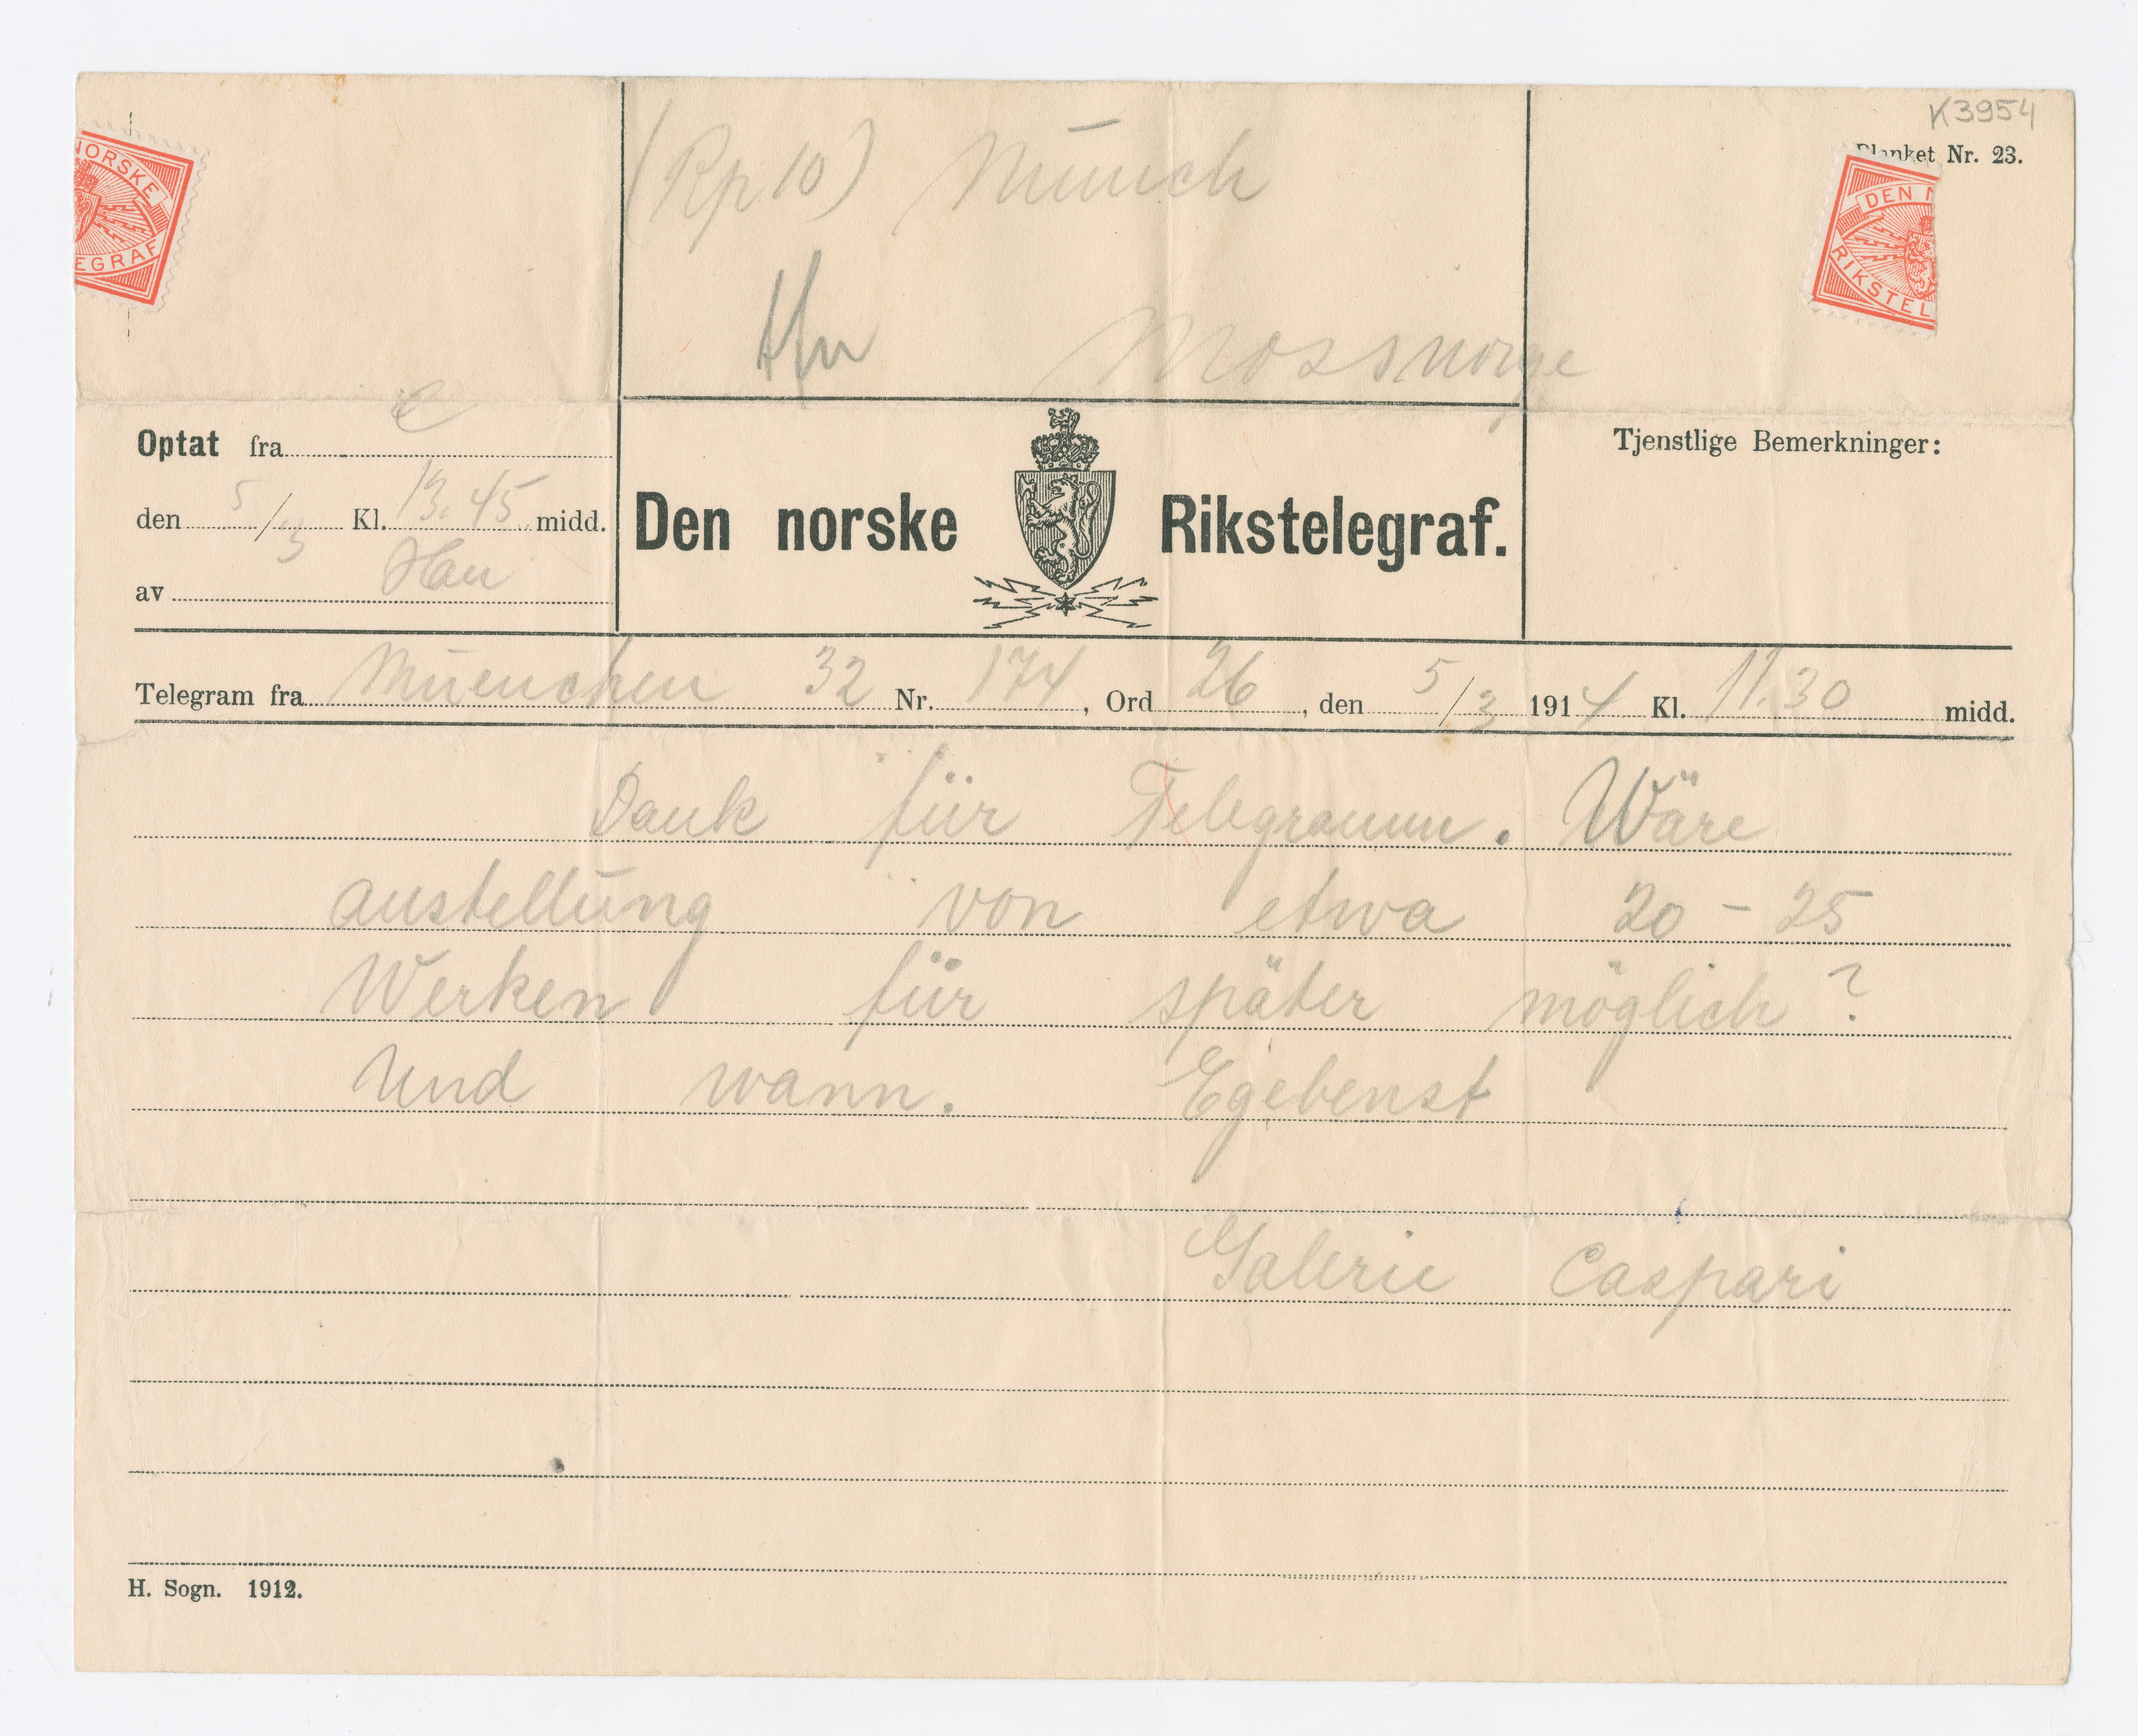 K3954
Blanket Nr. 23.
NORSKE
EGRAF
DEN N
RIKSTEL
(Rp 10) Munch
Mossnorge
Optat fra
den 5/3 Kl. 13.45 midd.
av
Den norske Rikstelegraf.
Tjenstlige Bemerkninger:
Telegram fra Müenchen 32 Nr. 174, Ord 26, den 5/3 1914 Kl. 11.30 midd.
Dank für Telegramm. Wäre
austellung von etwa 20 - 25
Werken für später möglich?
Und wann. Egebenst
Galerie Caspari
H. Sogn. 1912.